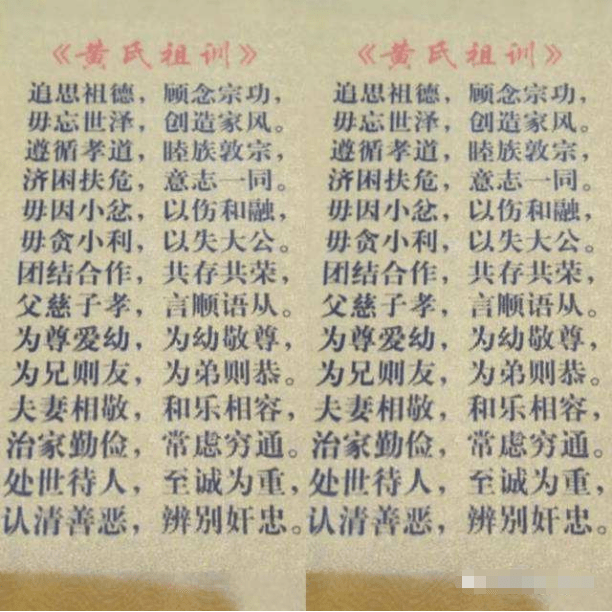 《黄氏祖训》
追思祖德，顾念宗功，
毋忘世泽，创造家风。
遵循孝道，睦族敦宗，
济困扶危，意志一同。
毋因小忿，以伤和融，
毋贪小利，以失大公。
团结合作，共存共荣，
父慈子孝，言顺语从。
为尊爱幼，为幼敬尊，
为兄则友，为弟则恭。
夫妻相敬，和乐相容，
治家勤俭，常虑穷通。
处世待人，至诚为重，
认清善恶，辨别奸忠。
《黄氏祖训》
追思祖德，顾念宗功，
毋忘世泽，创造家风。
遵循孝道，睦族敦宗，
济困扶危，意志一同。
毋因小忿，以伤和融，
毋贪小利，以失大公。
团结合作，共存共荣，
父慈子孝，言顺语从。
为尊爱幼，为幼敬尊，
为兄则友，为弟则恭。
夫妻相敬，和乐相容，
治家勤俭，常虑穷通。
处世待人，至诚为重，
认清善恶，辨别奸忠。